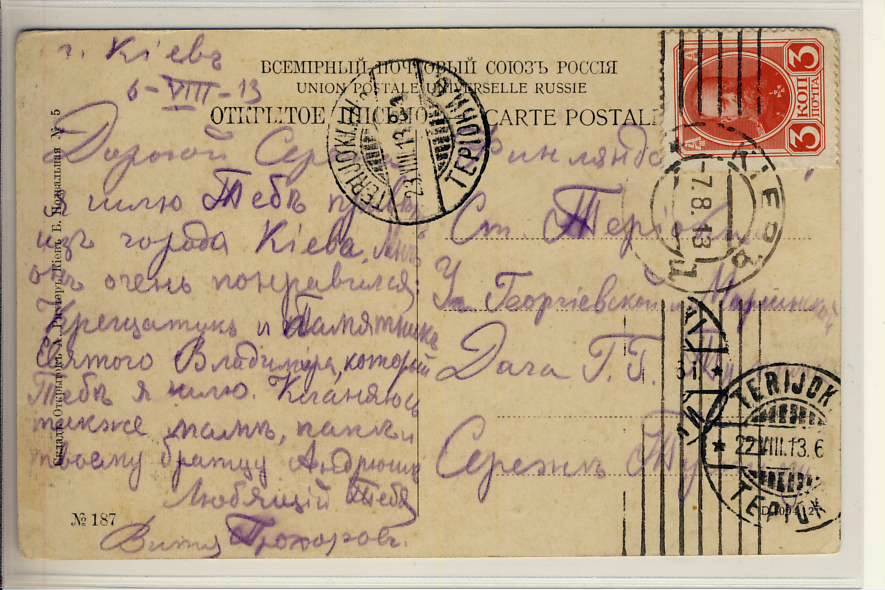 г. Кіевъ
6-VIII-13
ВСЕМІРНЫЙ ПОЧТОВЫЙ СОЮЗЪ РОССІЯ
UNION POSTALE UNIVERSELLE RUSSIE
ОТКРЫТОЕ ПИСЬМО
CARTE POSTALE
Дорогой
я шлю Тебѣ
изъ города Кіева, мнѣ
онъ очень понравился.
Крещатикъ и Памятникъ
Святого Владиміра, который
Тебѣ я шлю. Кланяюсь
также мамѣ, папѣ и
твоему братцу Андрюшѣ
Любящій Тебя
Витя Прохоровъ.
№ 187
Ст.
Ул. Георгіевской и Маріинской
Дача Г. Г.
Сережѣ
3 КОП 3
ПОЧТА
КІЕВЪ
-7.8.13
TERIJOKI
23.VIII.13
ТЕРІОКИ
TERIJOKI
22.VIII.13.6
ТЕРІОКИ